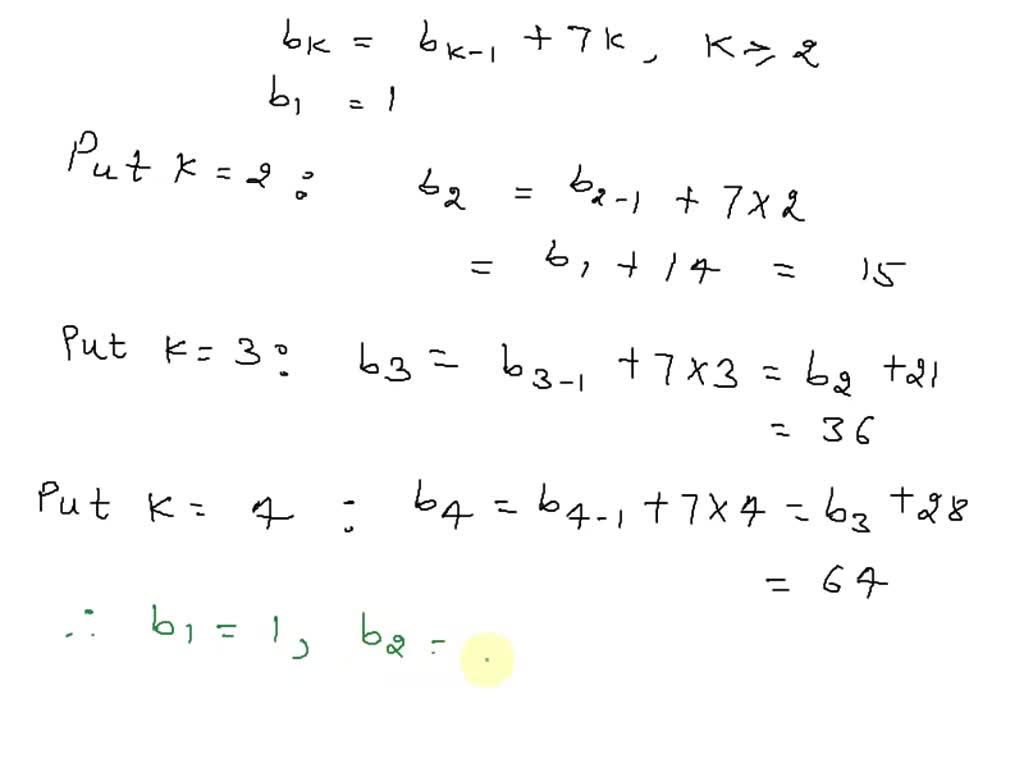 bₖ = bₖ₋₁ + 7k, k ⩾ 2
b₁ = 1
Put k = 2 : b₂ = b₂₋₁ + 7 × 2
= b₁ + 14 = 15
Put k = 3 : b₃ = b₃₋₁ + 7 × 3 = b₂ + 21
= 36
Put k = 4 : b₄ = b₄₋₁ + 7 × 4 = b₃ + 28
= 64
∴ b₁ = 1, b₂ =